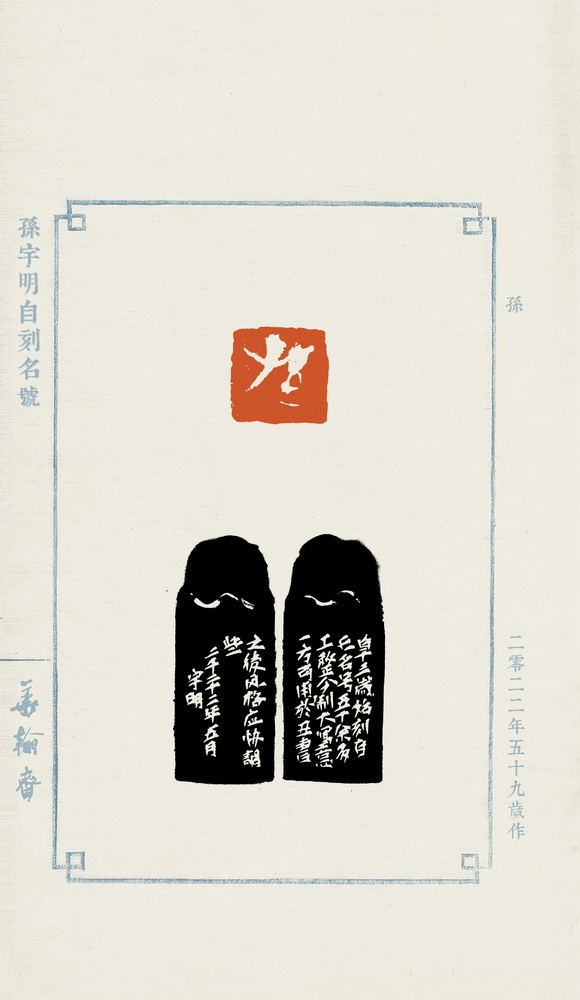 孫
二零二二年五十九歲作
三歲始刻自
己名号五十余方
工整今制大寫意
一方可用於丑書
之後风格应协調
些
二千二十二年五月
宇明
孫宇明自刻名號
翰齋